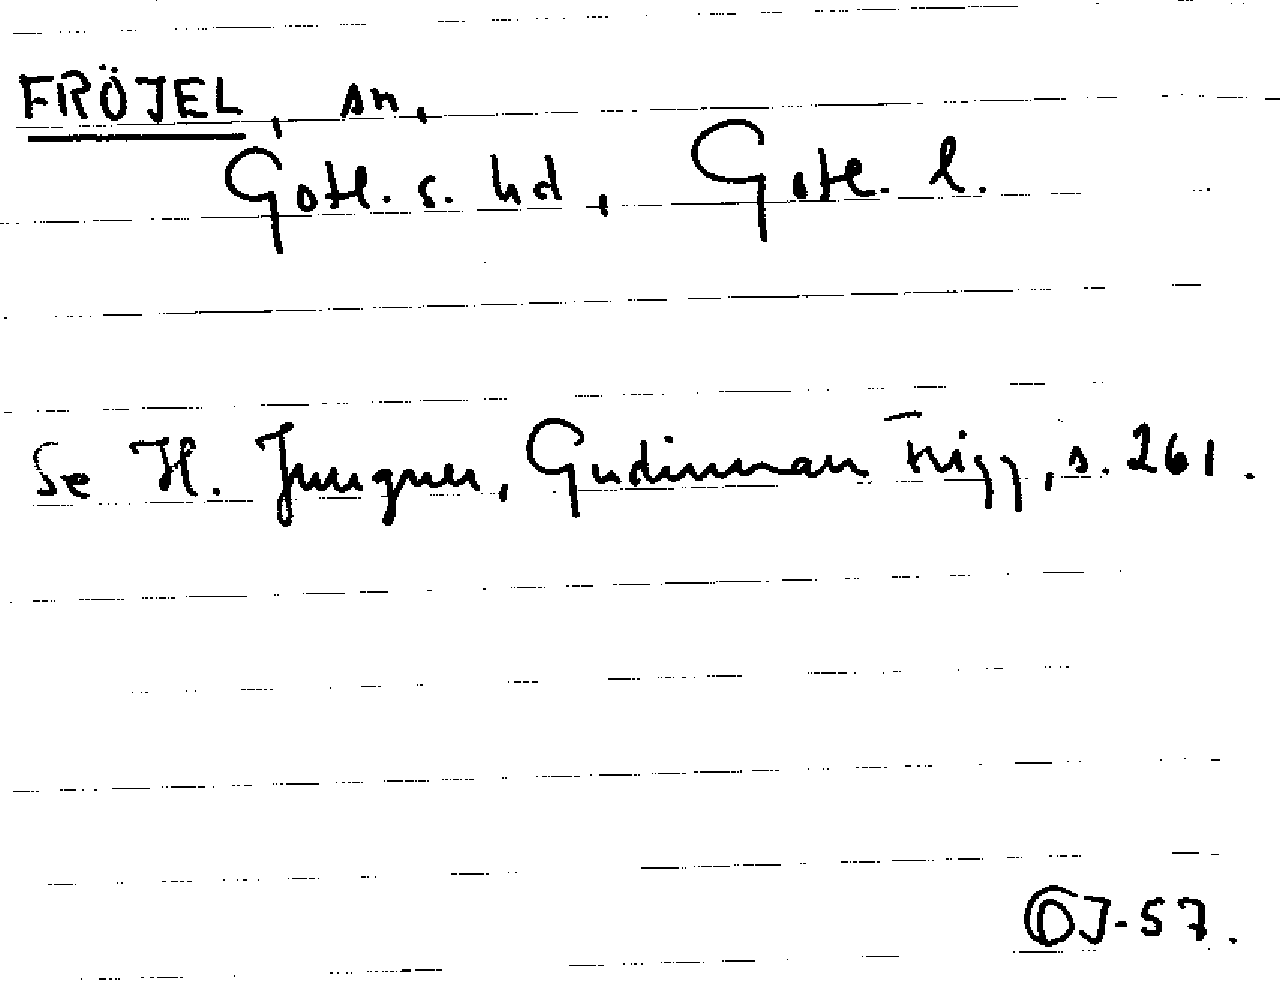 FRÖJEL, sn,
Gotl. s. hd, Gotl. l.
Se H. Jungner, Gudinnan Frigg, s. 261.
OJ-57.